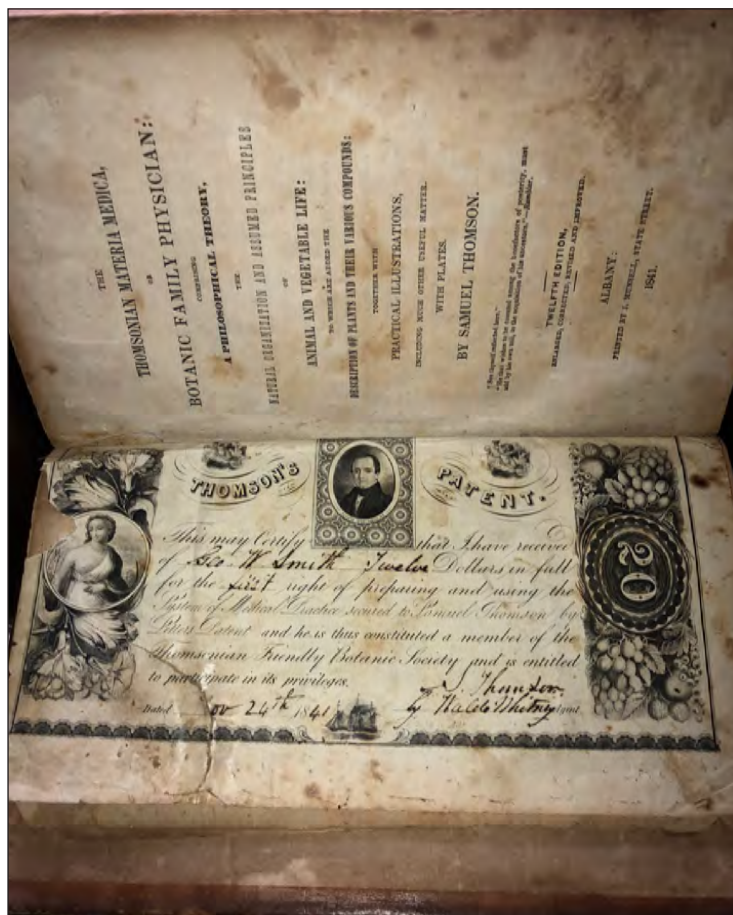 THE
THOMSONIAN MATERIA MEDICA,
OR
BOTANIC FAMILY PHYSICIAN:
COMPRISING
A PHILOSOPHICAL THEORY,
THE
NATURAL ORGANIZATION AND ASSUMED PRINCIPLES
OF
ANIMAL AND VEGETABLE LIFE:
TO WHICH ARE ADDED THE
DESCRIPTION OF PLANTS AND THEIR VARIOUS COMPOUNDS:
TOGETHER WITH
PRACTICAL ILLUSTRATIONS,
INCLUDING MUCH OTHER USEFUL MATTER.
WITH PLATES.
BY SAMUEL THOMSON.
"See thyself reflected here."
"He that wishes to be counted among the benefactors of posterity, must
add by his own toil, to the acquisitions of his ancestors."—Rambler.
TWELFTH EDITION,
ENLARGED, CORRECTED, REVISED AND IMPROVED.
ALBANY:
PRINTED BY J. MUNSELL, STATE STREET.
1841.
THOMSON'S PATENT.
This may Certify that I have received
of Geo. W Smith Twelve Dollars in full
for the right of preparing and using the
System of Medical Practice secured to Samuel Thomson by
Letters Patent and he is thus constituted a member of the
Thomsonian Friendly Botanic Society and is entitled
to participate in its privileges.
Dated 24th 1841
by Whitney
20